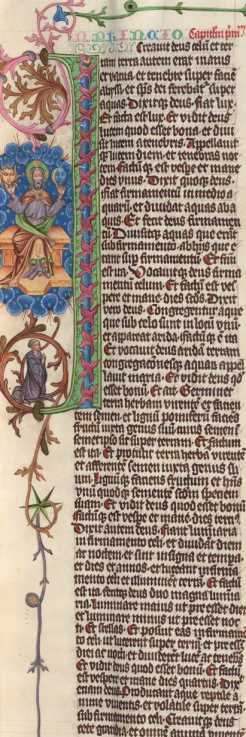 IN PRINCIPIO Capitulum primum
Creavit deus celum et ter
ram terra autem erat inanis
et vacua, et tenebre super faciem
abyssi: et sps dei ferebatur super
aquas. Dixitque deus, fiat lux.
Et facta est lux. Et vidit deus
lucem quod esset bona: et divi
sit lucem a tenebris. Appellavit
que lucem diem, et tenebras noc
tem. Factumque est vespe et mane
dies unus. Dixit quoque deus:
fiat firmamentum in medio a
quarum, et dividat aquas ab a
quis. Et fecit deus firmamen
tum. Divisitque aquas que erant
sub firmamento: ab hiis que e
rant super firmamentum. Et factum
est ita. Vocavitque deus firma
mentum celum. Et factum est ves
pere et mane: dies secundus. Dixit
vero deus. Congregentur aque
que sub celo sunt in locum unum:
et appareat arida. factumque est ita
Et vocavit deus aridam terram:
congregacionesque aquarum appel
lavit maria. Et vidit deus quod
esset bonum. Et ait. Germinet
terra herbam virentem et facien
tem semen: et lignum pomiferum faciens
fructum iuxta genus suum cuius semen in
semetipso sit super terram. Et factum
est ita. Et protulit terra herbam virentem
et afferentem semen iuxta genus su
um: lignumque faciens fructum: et habens
unumquodque sementem secundum speciem
suam. Et vidit deus quod esset bonum:
factumque est vespe et mane: dies tercius.
Dixit autem deus: fiant luminaria
in firmamento celi: et dividant diem
ac noctem: et sint in signa et tempora
et dies et annos: et luceant in firma
mento celi et illuminent terram. Et factum
est ita. fecitque deus duo magna lumina
ria: luminare maius ut preesset diei:
et luminare minus ut preesset noc
ti: et stellas. Et posuit eas in firmamen
to celi: ut lucerent super terram: et preessent
diei ac nocti: et dividerent lucem ac tenebras
Et vidit deus quod esset bonum. Et factum
est vespere et mane: dies quartus. Dixit
eciam deus. Producant aque reptile a
nime viventis: et volatile super terram:
sub firmamento celi. Creavitque deus
cete grandia: et omnem animam viventem